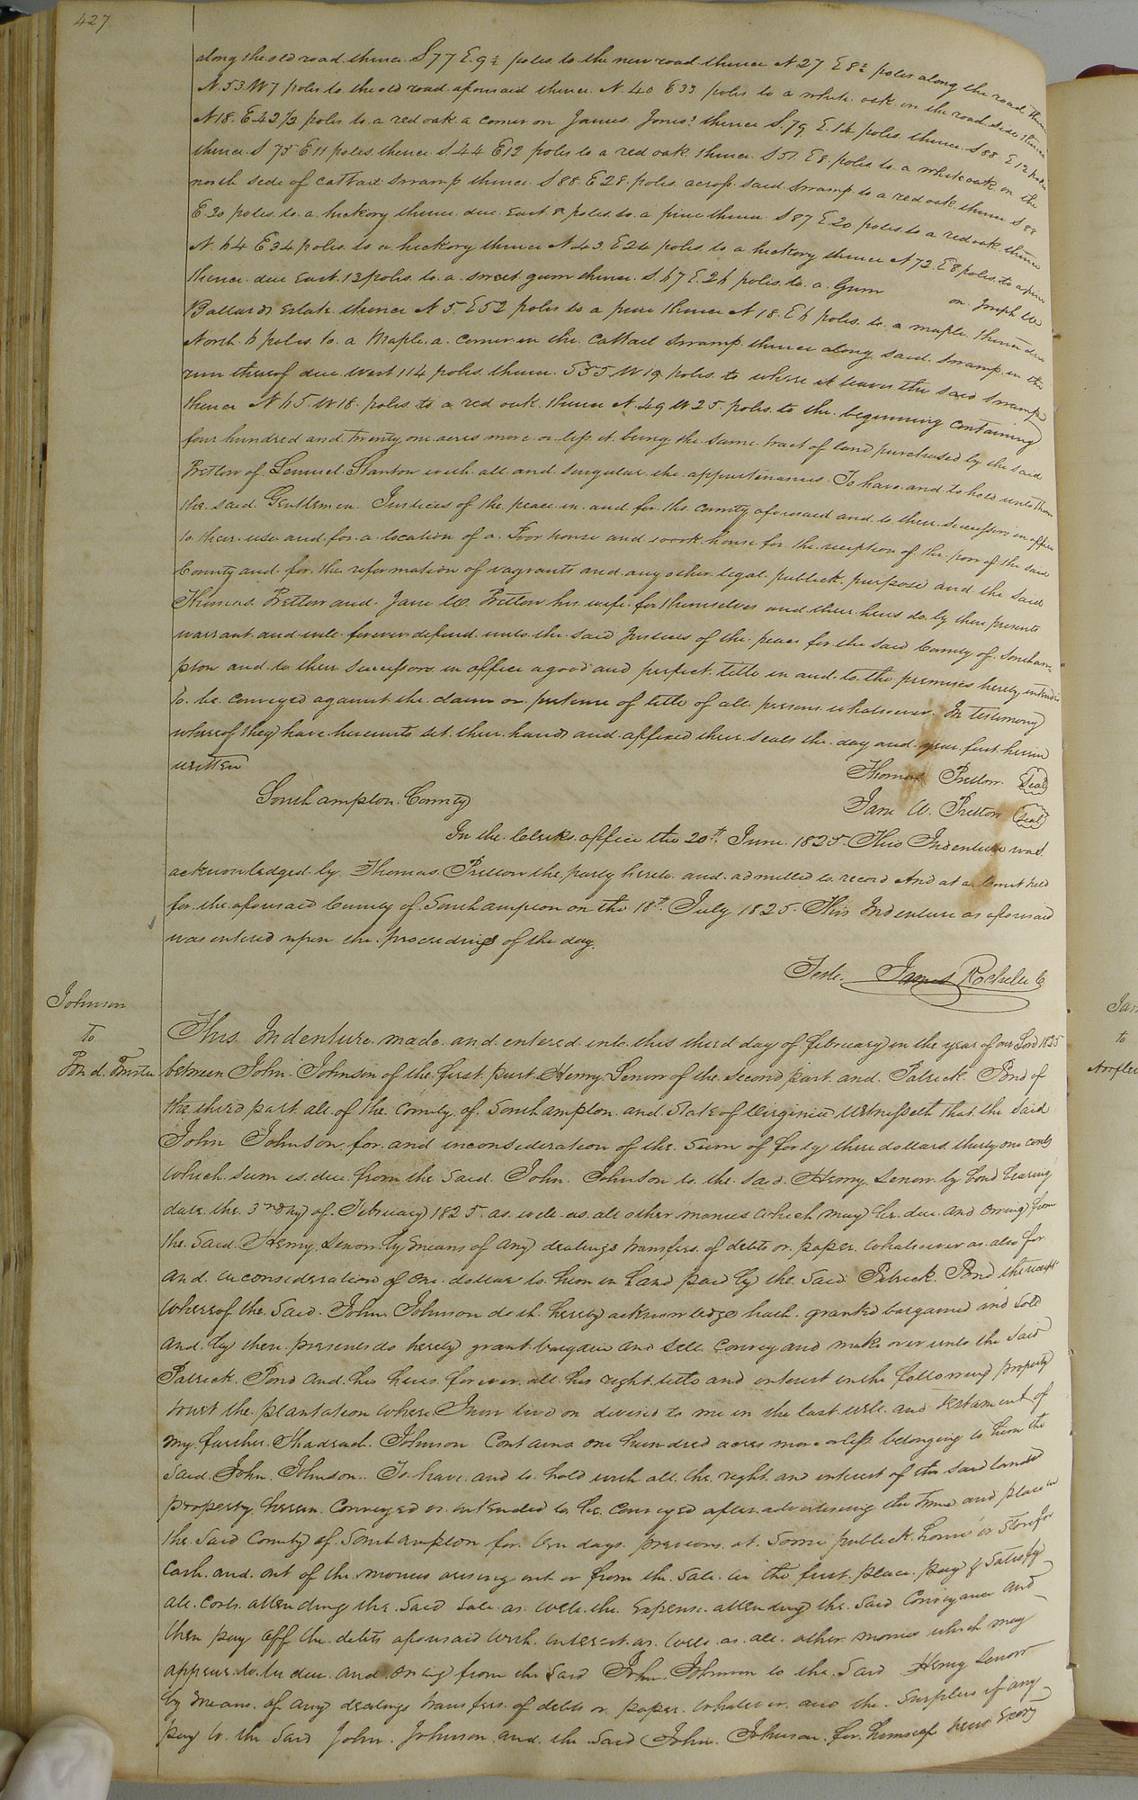 427
along the old road thence S 77 E 9½ poles to the new road thence N 27 E 8½ poles along the road thence
N. 53 W 7 poles to the old road aforesaid thence N. 40 E 33 poles to a white oak on the road side thence
N 18. E 42½ poles to a red oak a corner on James Jones' thence S. 79 E. 14 poles thence S 88 E 12 poles
thence S 75 E 11 poles thence S. 44 E 12 poles to a red oak thence S 51 E 8 poles to a white oak on the
north side of Cattail Swamp thence S 88. E 28 poles across said Swamp to a red oak thence S 88
E. 30 poles to a hickory thence due East 8 poles to a pine thence S 87 E 20 poles to a red oak thence
N. 64 E 34 poles to a hickory thence N 43 E 26 poles to a hickory thence N 72 E 8 poles to a pine
thence due East 12 poles to a sweet gum thence S. 67 E. 26 poles to a Gum on Joseph W
Ballards Estate thence N 5. E 52 poles to a pine thence N 18. E 6 poles to a maple thence due
North 6 poles to a Maple a corner in the Cattail Swamp thence along said Swamp in the
run thereof due West 114 poles thence S 35 W 19 poles to where it leaves the said Swamp
thence N 65 W 18 poles to a red oak thence N. 49 W 25 poles to the beginning containing
four hundred and twenty one acres more or less it being the same tract of land purchased by the said
Pretlow of Lemuel Stanton with all and singular the appurtenances To have and to hold unto them
the said Gentlemen Justices of the peace in and for the County aforesaid and to their Successors in office
to their use and for a location of a Poor house and work house for the reception of the poor of the said
County and for the reformation of vagrants and any other legal publick purpose and the said
Thomas Pretlow and Jane W. Pretlow his wife for themselves and their heirs do by these presents
warrant and will forever defend unto the said Justices of the peace for the said County of Southam-
pton and to their successors in office a good and perfect title in and to the premises hereby intended
to be conveyed against the claim or pretence of title of all persons whatsoever. In testimony
whereof they have hereunto set their hands and affixed their seals the day and year first herein
written
Thomas Pretlow Seal
Southampton County
Jane W. Pretlow Seal
In the Clerks office the 20th June 1825. This Indenture was
acknowledged by Thomas Pretlow the party hereto and admitted to record And at a Court held
for the aforesaid County of Southampton on the 18th July 1825. This Indenture as aforesaid
was entered upon the proceedings of the day.
Teste. James Rochelle C
Johnson
to
Pond Trustee
This Indenture made and entered into this third day of February in the year of our Lord 1825
between John Johnson of the first part Henry Lenow of the second part and Patrick Pond of
the third part all of the County of Southampton and State of Virginia Witnesseth that the said
John Johnson for and in consideration of the Sum of forty three dollars thirty one cents
which sum is due from the said John Johnson to the said Henry Lenow by bond bearing
date the 3rd day of February 1825 as well as all other monies which may be due and owing from
the said Henry Lenow by means of any dealings transfers of debts or paper whatsoever as also for
and in consideration of one dollar to him in hand paid by the said Patrick Pond the receipt
whereof the said John Johnson doth hereby acknowledge hath granted bargained and sold
and by these presents do hereby grant bargain and sell convey and make over unto the said
Patrick Pond and his heirs forever all his right title and interest in the following property
towit the plantation where I now live on devised to me in the last will and testament of
my farther Shadrach Johnson Contains one hundred acres more or less belonging to him the
said John Johnson. To have and to hold with all the right and interest of the said lands
property herein conveyed or intended to be conveyed after advertiseing the time and place in
the said County of Southampton for ten days previous at some publick house or store for
Cash and out of the monies arising out or from the sale in the first place pay & satisfy
all costs attending the said sale as well the Expense attending the said Conveyance and
then pay off the debts aforesaid with interest as well as all other monies which may
appear to be due and owing from the said John Johnson to the said Henry Lenow
by means of any dealings transfers of debts or paper whatever and the surplus if any
pay to the said John Johnson and the said John Johnson for himself heirs Exors
to